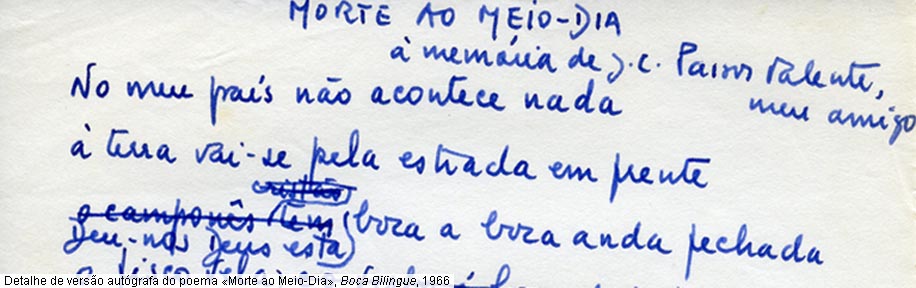 MORTE AO MEIO-DIA
à memória de J.C. Passos Valente,
meu amigo
No meu país não acontece nada
à terra vai-se pela estrada em frente
cristão
o camponês tem boca a boca anda fechada
Deu-nos Deus esta
Detalhe de versão autógrafa do poema «Morte ao Meio-Dia», Boca Bilingue, 1966